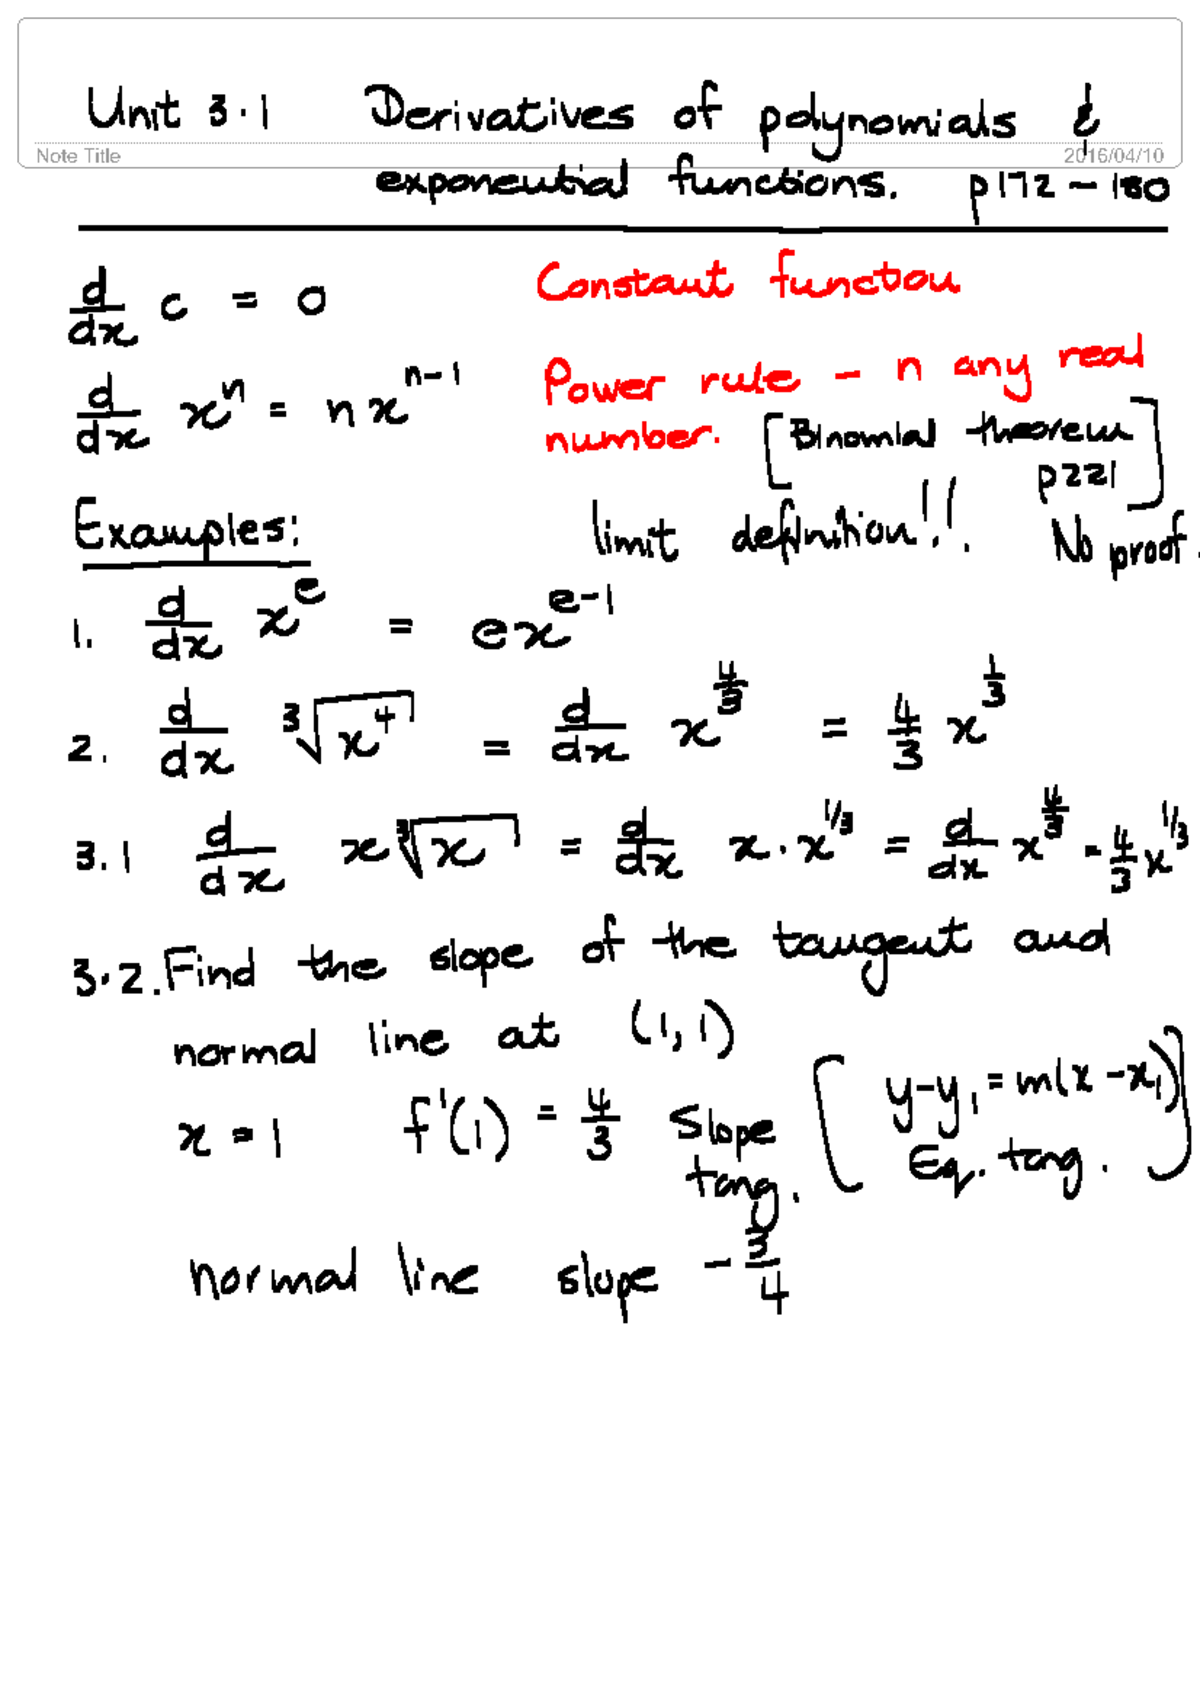 Unit 3.1 Derivatives of polynomials &
Note Title 2016/04/10
exponential functions. p172 - 180
d/dx c = 0 Constant function
d/dx xⁿ = nxⁿ⁻¹ Power rule - n any real
number. [Binomial theorem
p221]
Examples: limit definition!! No proof.
1. d/dx x^e = ex^(e-1)
2. d/dx ³√(x⁴) = d/dx x^(4/3) = 4/3 x^(1/3)
3.1 d/dx x ³√x = d/dx x · x^(1/3) = d/dx x^(4/3) = 4/3 x^(1/3)
3.2. Find the slope of the tangent and
normal line at (1,1)
x = 1 f'(1) = 4/3 Slope tang. [y-y₁ = m(x-x₁) Eq. tang.]
normal line slope -3/4